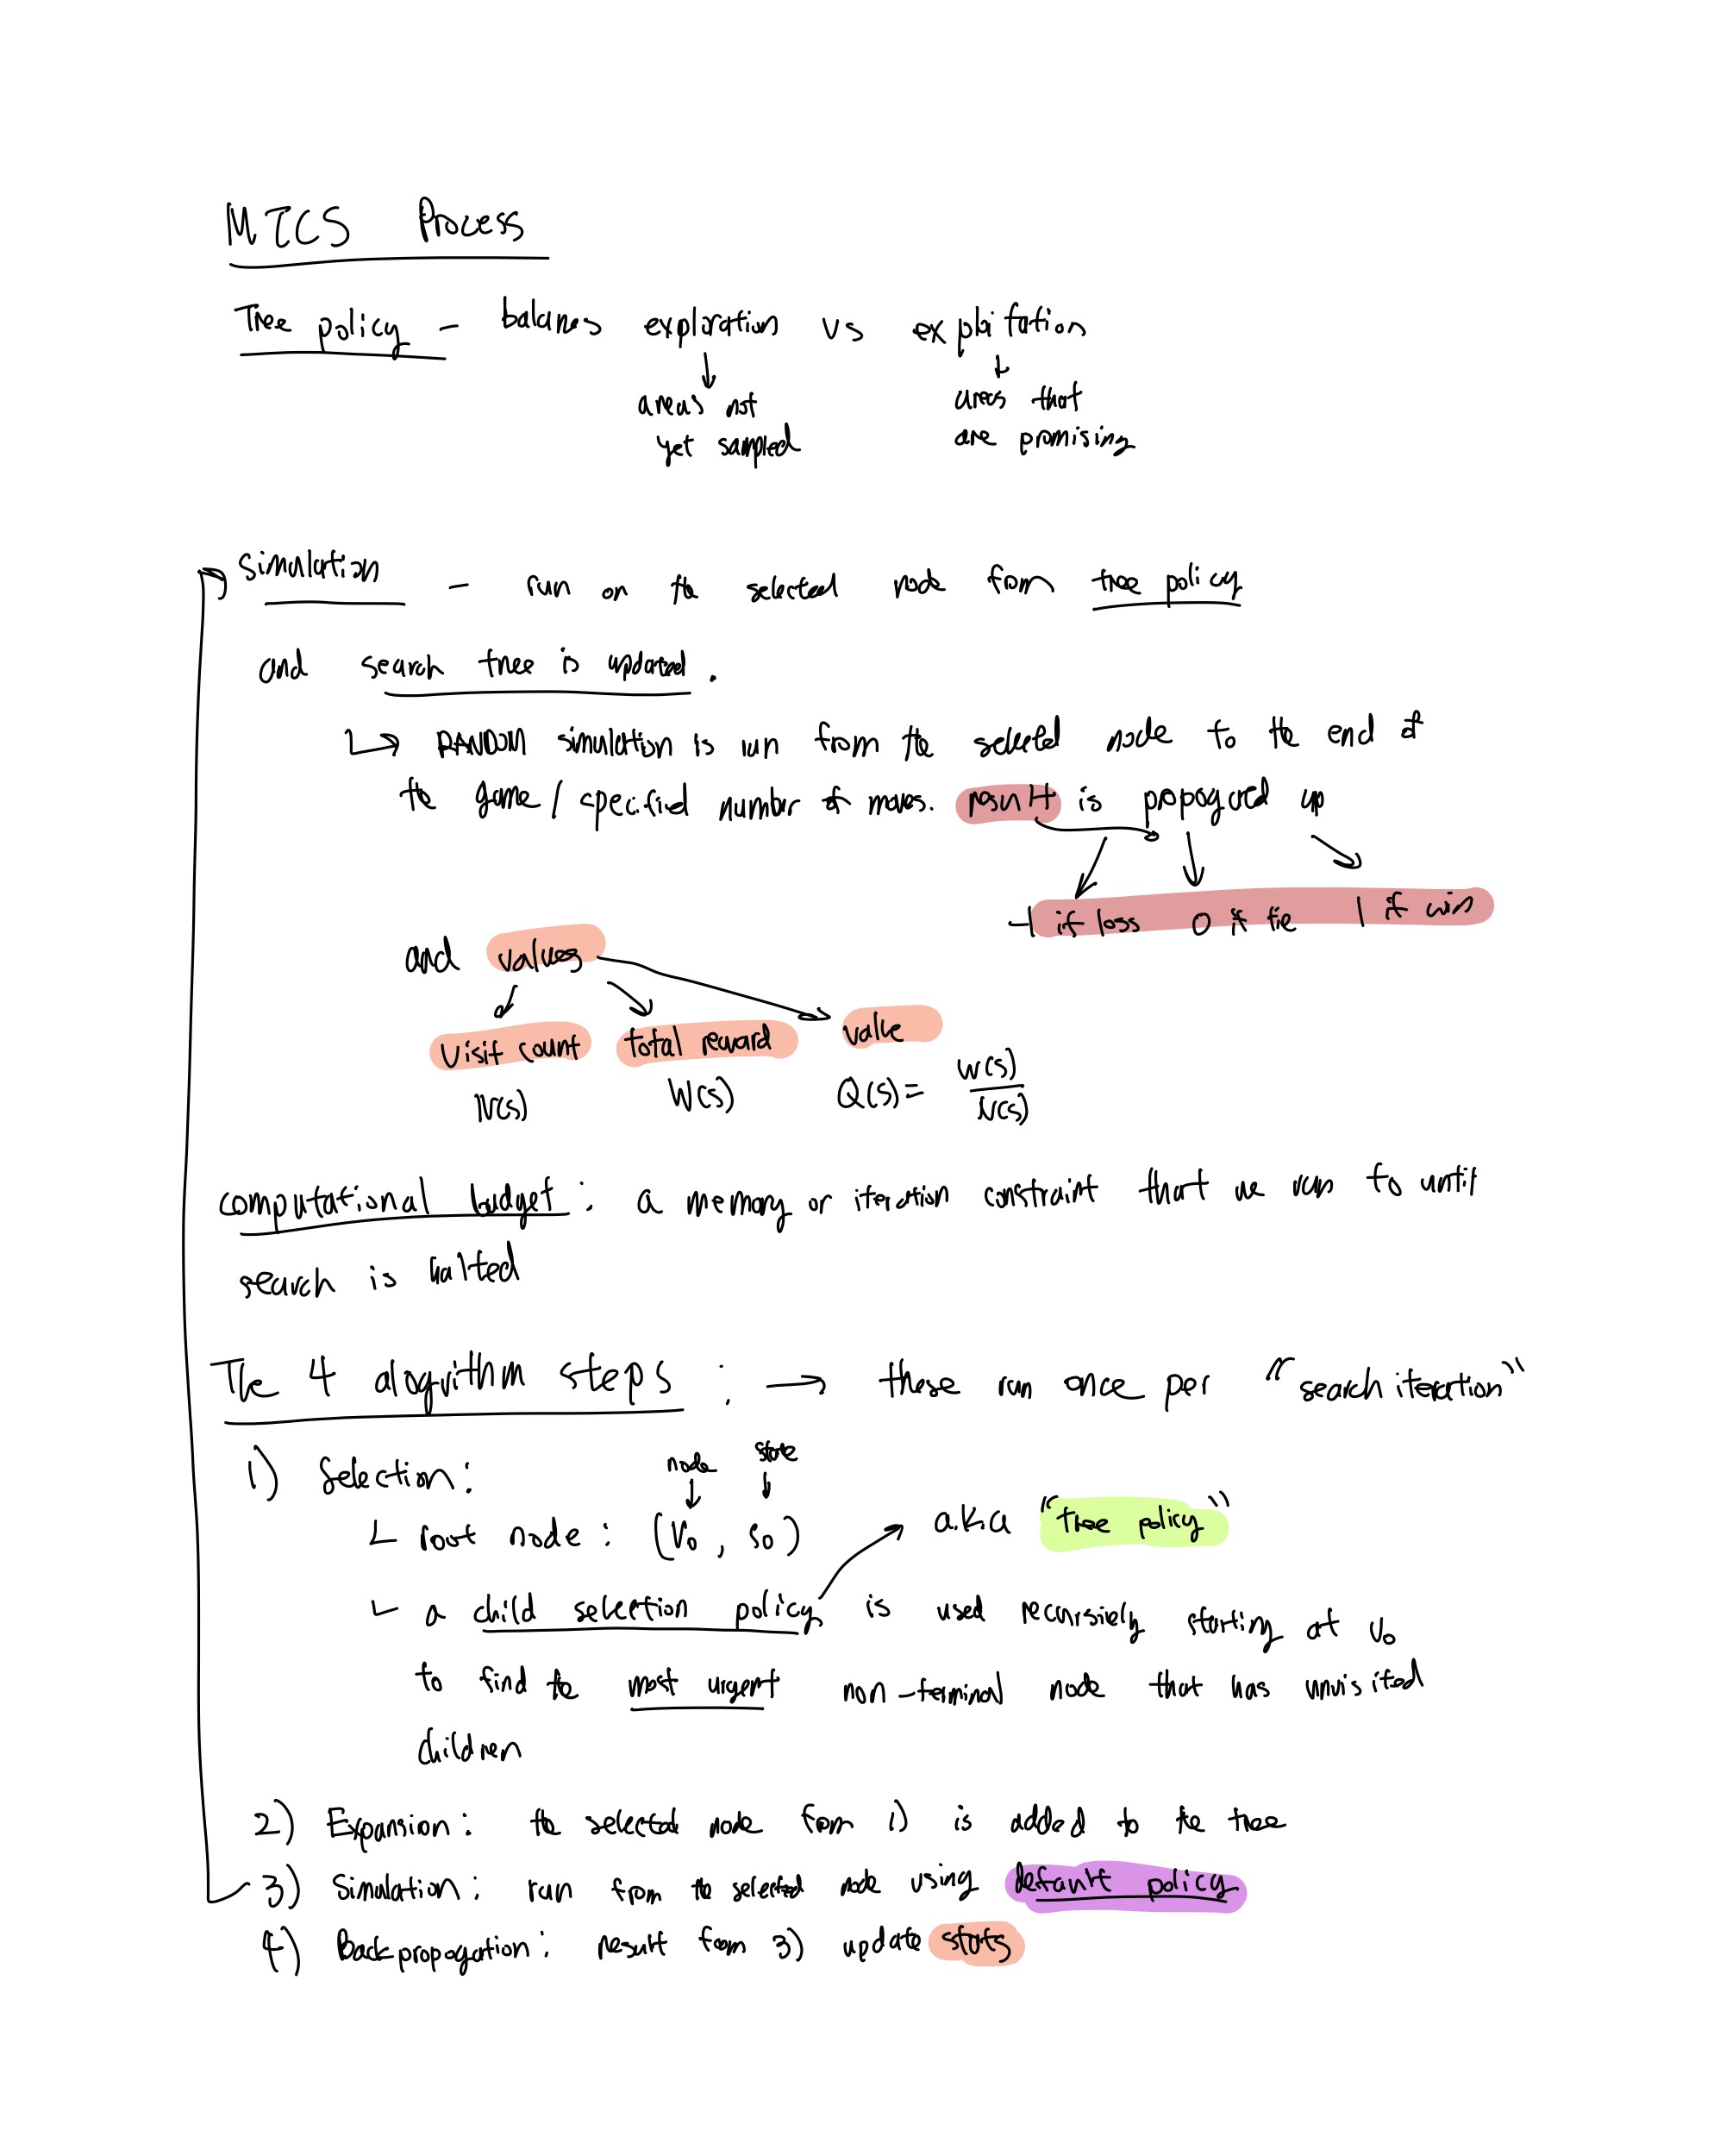 MTCS Process
Tree policy – balances exploration vs exploitation
areas not areas that
yet sampled are promising
simulation – run on the selected node from tree policy
and search tree is updated.
RANDOM simulation is run from the selected node to the end of
the game / specified number of moves. result is propogated up
-1 if loss 0 if tie 1 if win
and values
visit count total reward value
N(s) W(s) Q(s) = W(s) / N(s)
computational budget: a memory or iteration constraint that we run to until
search is halted
The 4 alogrithm steps: → these run once per "search iteration"
1) Selection: node state
root node: (V₀, s₀) a.k.a "tree policy"
a child selection policy is used recursively starting at v₀
to find the most urgent non-terminal node that has unvisited
children
2) Expansion: the selected node from 1) is added to the tree
3) Simulation: run from the selected node using default policy
4) Backpropogation: result from 3) update stats